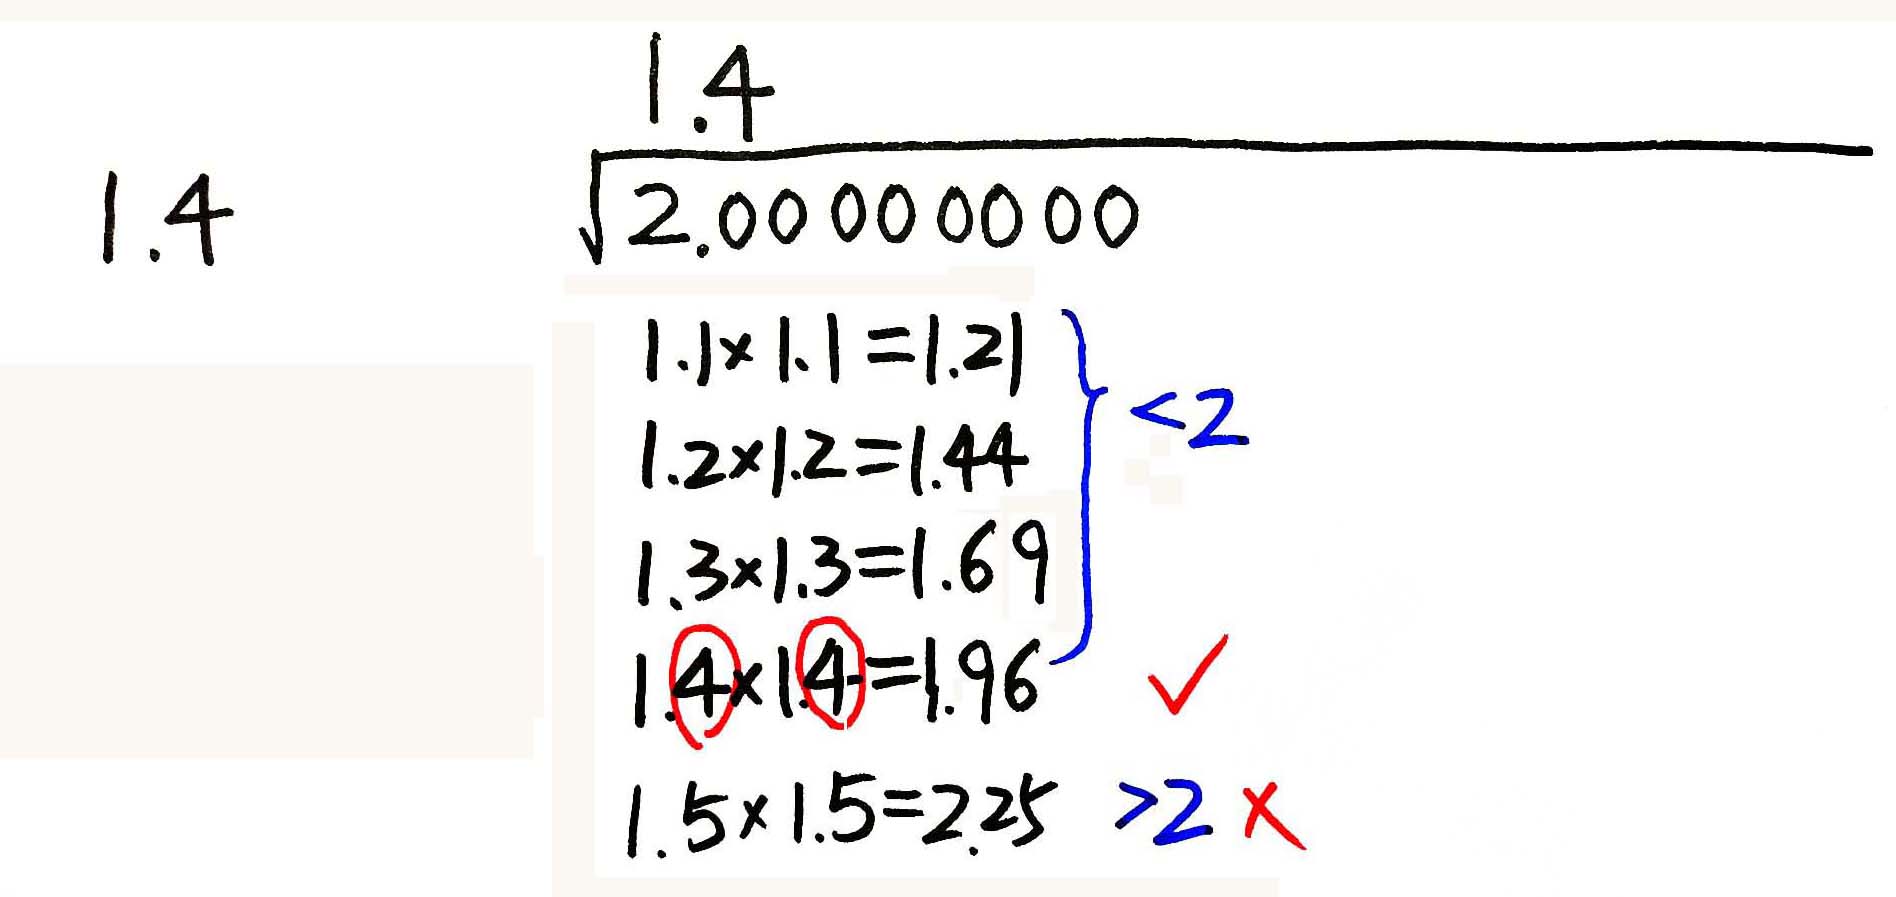 1.4
1.4 √2.00 00 00 00
1.1×1.1=1.21
1.2×1.2=1.44 <2
1.3×1.3=1.69
1.4×1.4=1.96 ✓
1.5×1.5=2.25 >2 ×